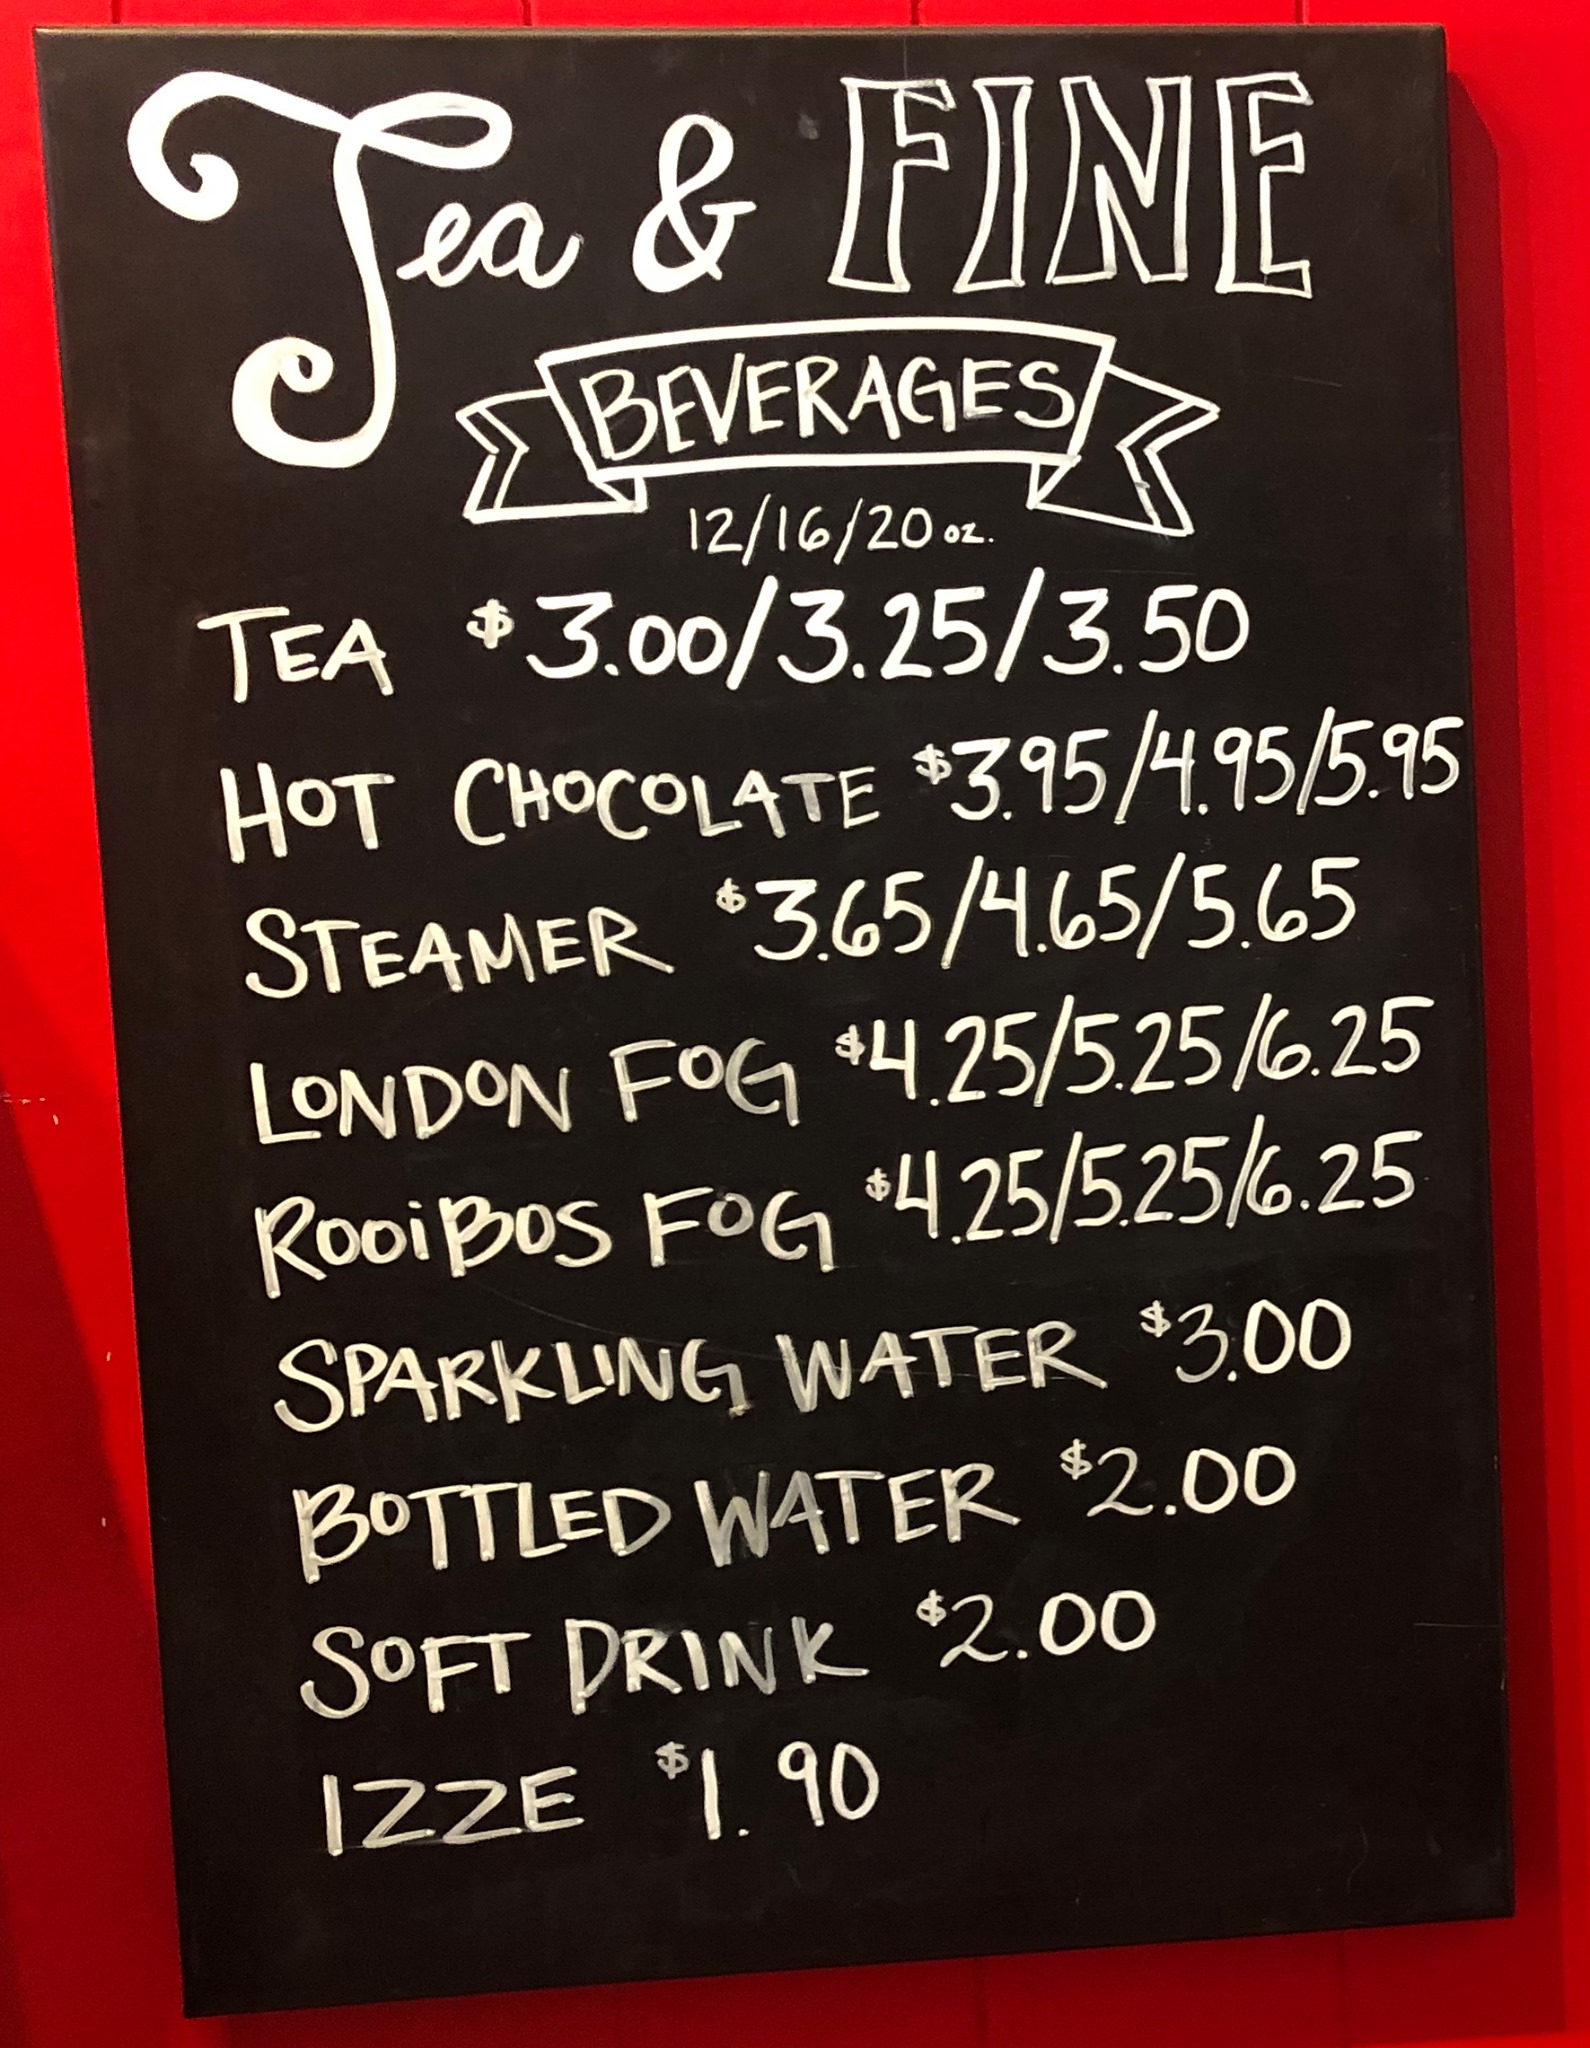 Tea & FINE
BEVERAGES
12/16/20 oz.
TEA $3.00/3.25/3.50
HOT CHOCOLATE $3.95/4.95/5.95
STEAMER $3.65/4.65/5.65
LONDON FOG $4.25/5.25/6.25
ROOiBOS FOG $4.25/5.25/6.25
SPARKLING WATER $3.00
BOTTLED WATER $2.00
SOFT DRINK $2.00
IZZE $1.90